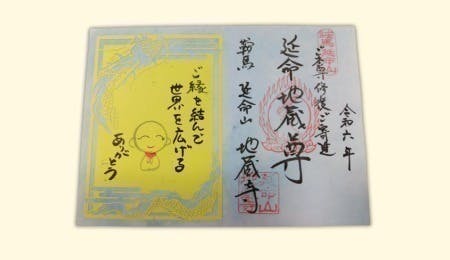 ご本尊修復ご寄進
令和六年
延命地蔵尊
鞍馬 延命山 地蔵寺
ご縁を結んで
世界を広げる
ありがとう